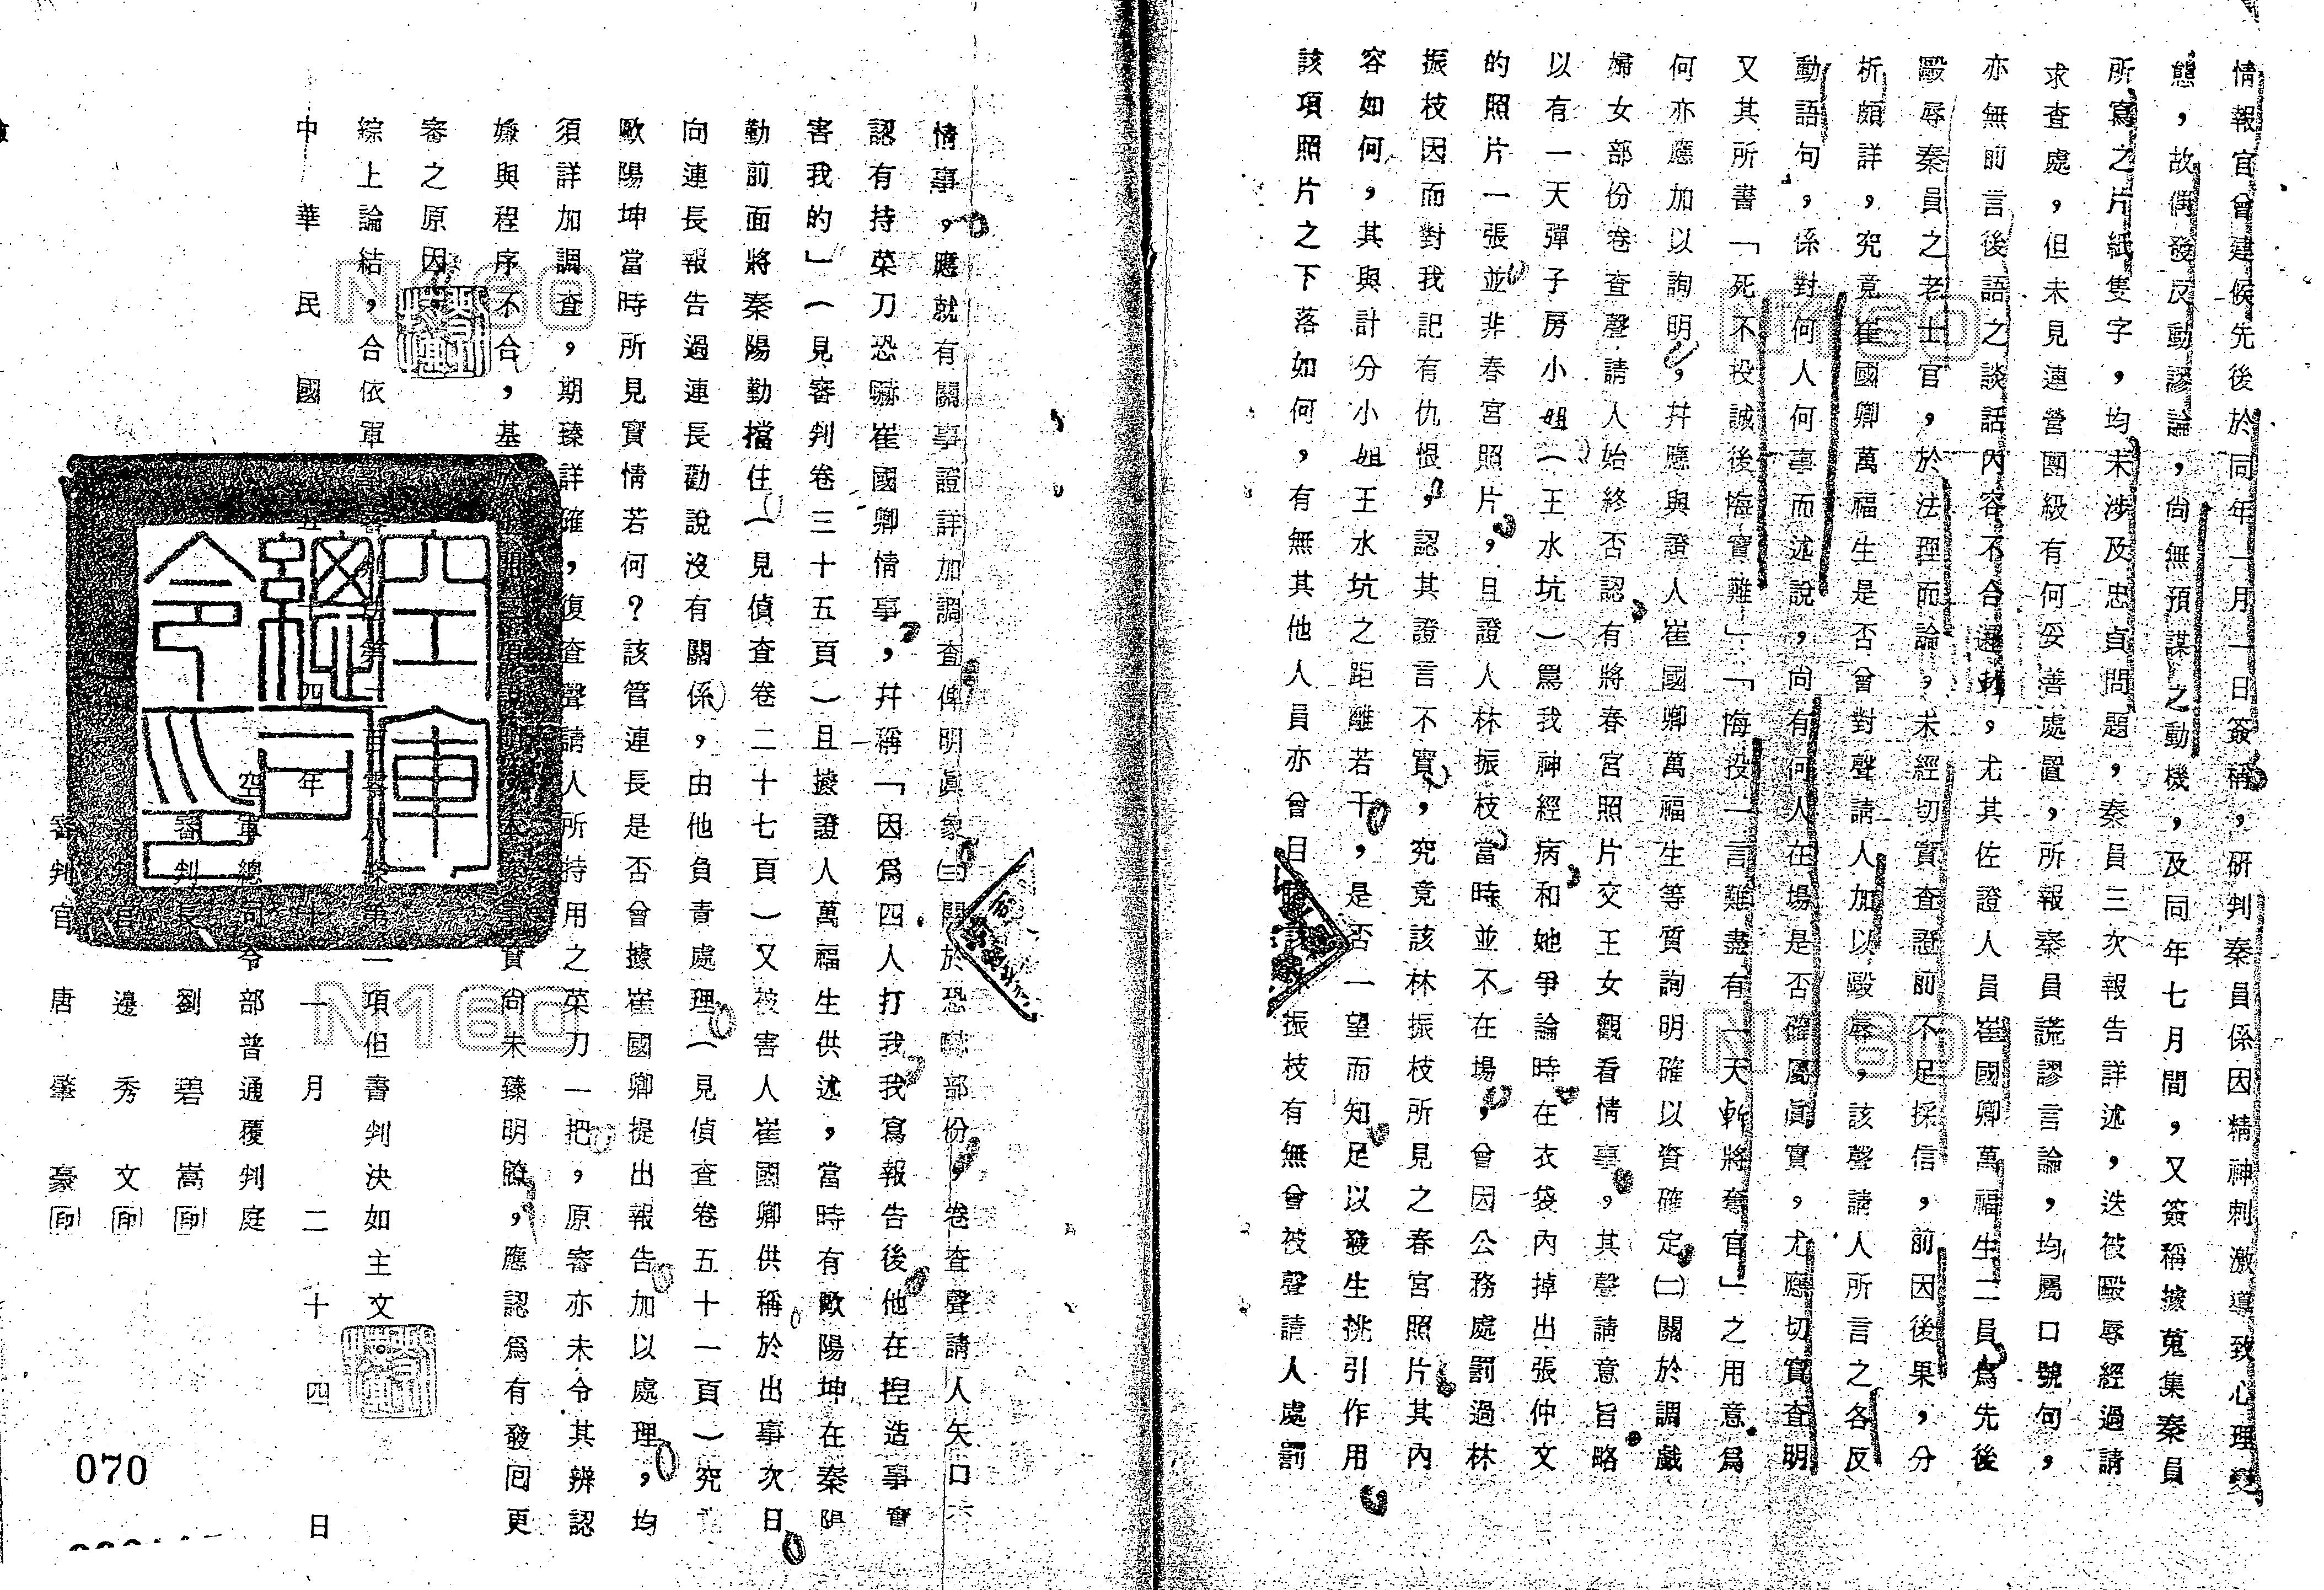 情報官曾建侯先後於同年一月一日簽稱，研判秦員係因精神刺激導致心理變
態，故偶發反動謬論，尙無預謀之動機，及同年七月間，又簽稱據蒐集秦員
所寫之片紙隻字，均未涉及忠貞問題，秦員三次報告詳述，迭被毆辱經過請
求查處，但未見連營團級有何妥善處置，所報秦員謊謬言論，均屬口號句，
亦無前言後語之談話內容不合邏輯，尤其佐證人員崔國卿萬福生二員爲先後
毆辱秦員之老士官，於法理而論，未經切實查證前不足採信，前因後果，分
析頗詳，究竟崔國卿萬福生是否曾對聲請人加以毆辱，該聲請人所言之各反
動語句，係對何人何事而述說，尙有何人在場是否確屬眞實，尤應切實查明
又其所書「死不投誠後悔實難」「悔投一言難盡有一天斬將奪官」之用意爲
何亦應加以詢明，幷應與證人崔國卿萬福生等質詢明確以資確定㈡關於調戲
婦女部份卷查聲請人始終否認有將春宮照片交王女觀看情事，其聲請意旨略
以有一天彈子房小姐（王水坑）罵我神經病和她爭論時在衣袋內掉出張仲文
的照片一張並非春宮照片，且證人林振枝當時並不在場，曾因公務處罰過林
振枝因而對我記有仇恨，認其證言不實，究竟該林振枝所見之春宮照片其內
容如何，其與計分小姐王水坑之距離若干，是否一望而知足以發生挑引作用
該項照片之下落如何，有無其他人員亦曾目睹該林振枝有無曾被聲請人處罰
情事，應就有關事證詳加調查俾明眞象㈢關於恐嚇部份，卷查聲請人矢口
認有持菜刀恐嚇崔國卿情事，幷稱「因爲四人打我我寫報告後他在揑造事實
害我的」（見審判卷三十五頁）且據證人萬福生供述，當時有歐陽坤在秦陽
勤前面將秦陽勤擋住（見偵查卷二十七頁）又被害人崔國卿供稱於出事次日
向連長報告過連長勸說沒有關係，由他負責處理（見偵查卷五十一頁）究
歐陽坤當時所見實情若何？該管連長是否曾據崔國卿提出報告加以處理，均
須詳加調查，期臻詳確，復查聲請人所持用之菜刀一把，原審亦未令其辨認
嫌與程序不合，基於 實尙未臻明瞭，應認爲有發囘更
審之原因。
綜上論結，合依軍 審 法第二百零八條第一項但書判決如主文
中華民國五十四年十一月二十四日
空軍總司令部普通覆判庭
審判長 劉碧嵩 印
審判官 邊秀文 印
審判官 唐肇豪 印
空軍總司令印
070